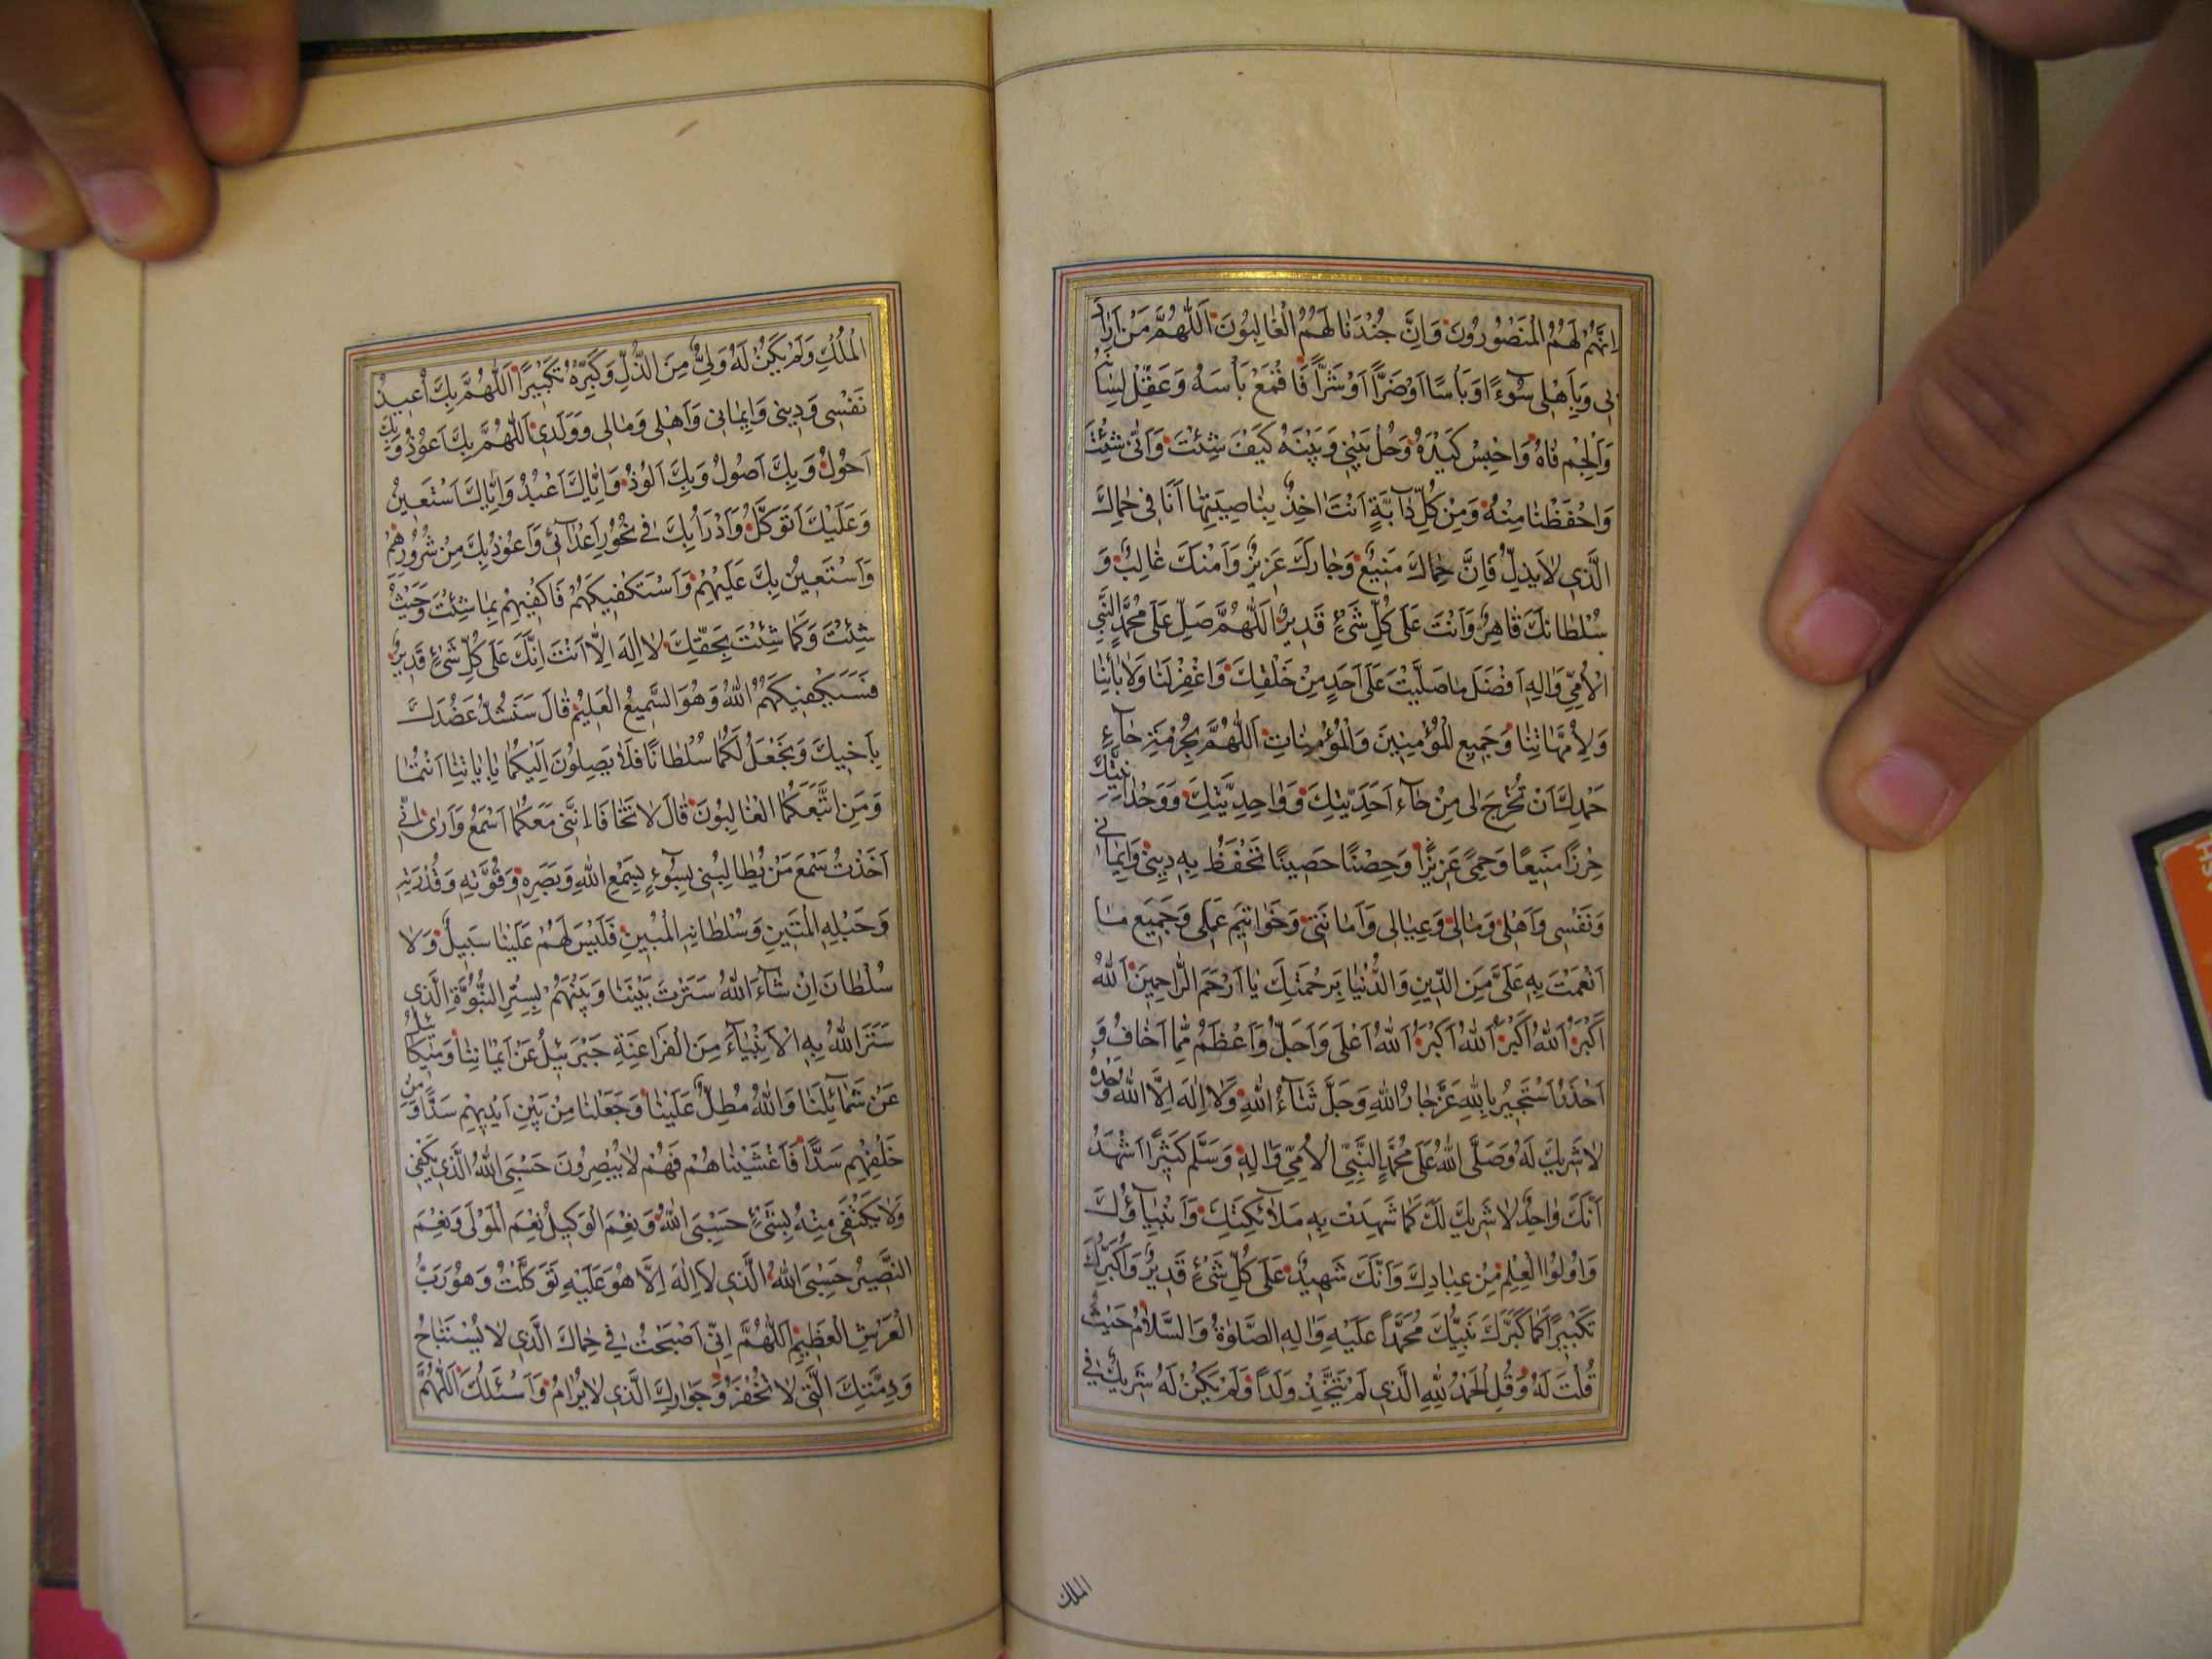 اِنَّهُمْ لَهُمُ الْمَنْصُورُونَ وَاِنَّ جُنْدَنٰا لَهُمُ الْغٰالِبُونَ اَللّٰهُمَّ مَنْ اَرٰادَ
بِى وَبِاَهْلِى سُوٓءًا اَوْ بَأْسًا اَوْ ضَرًّا اَوْ شَرًّا فَاقْمَعْ بَأْسَهُ وَعَقِّلْ لِسٰانَهُ
وَاَلْجِمْ فٰاهُ وَاحْبِسْ كَيْدَهُ وَحُلْ بَيْنِى وَبَيْنَهُ كَيْفَ شِئْتَ وَاَنّٰى شِئْتَ
وَاحْفَظْنٰا مِنْهُ وَمِنْ كُلِّ دٰٓابَّةٍ اَنْتَ اٰخِذٌ بِنٰاصِيَتِهٰا اَنَا فِى حِمٰاكَ
الَّذِى لٰا يَذِلُّ فَاِنَّ حِمٰاكَ مَنِيعٌ وَجٰارَكَ عَزِيزٌ وَاَمْنَكَ غٰالِبٌ وَ
سُلْطٰانَكَ قٰاهِرٌ وَاَنْتَ عَلٰى كُلِّ شَىْءٍ قَدِيرٌ اَللّٰهُمَّ صَلِّ عَلٰى مُحَمَّدٍ النَّبِىِّ
الْاُمِّىِّ وَاٰلِهِ اَفْضَلَ مٰا صَلَّيْتَ عَلٰى اَحَدٍ مِنْ خَلْقِكَ وَاغْفِرْ لَنٰا وَلِاٰبٰائِنٰا
وَلِاُمَّهٰاتِنٰا وَجَمِيعِ الْمُؤْمِنِينَ وَالْمُؤْمِنٰاتِ اَللّٰهُمَّ بِحُرْمَةِ حٰٓاءِ
حَمْدِكَ اَنْ تُخْرِجَ لِى مِنْ حٰٓاءِ اَحَدِيَّتِكَ وَوٰاحِدِيَّتِكَ وَوَحْدٰانِيَّتِكَ
حِرْزًا مَنِيعًا وَحِمًى عَزِيزًا وَحِصْنًا حَصِينًا تَحْفَظُ بِهِ دِينِى وَاِيمٰانِى
وَنَفْسِى وَاَهْلِى وَمٰالِى وَعِيٰالِى وَاَمٰانَتِى وَخَوٰاتِيمَ عَمَلِى وَجَمِيعَ مٰا
اَنْعَمْتَ بِهِ عَلَىَّ مِنَ الدِّينِ وَالدُّنْيٰا بِرَحْمَتِكَ يٰا اَرْحَمَ الرّٰاحِمِينَ اَللّٰهُ
اَكْبَرُ اَللّٰهُ اَكْبَرُ اَللّٰهُ اَكْبَرُ اَللّٰهُ اَعْلٰى وَاَجَلُّ وَاَعْظَمُ مِمّٰا اَخٰافُ وَ
اَحْذَرُ اَسْتَجِيرُ بِاللّٰهِ عَزَّ جٰارُ اللّٰهِ وَجَلَّ ثَنٰٓاءُ اللّٰهِ وَلٰا اِلٰهَ اِلَّا اللّٰهُ وَحْدَهُ
لٰا شَرِيكَ لَهُ وَصَلَّى اللّٰهُ عَلٰى مُحَمَّدٍ النَّبِىِّ الْاُمِّىِّ وَاٰلِهِ وَسَلَّمَ كَثِيرًا اَشْهَدُ
اَنَّكَ وٰاحِدٌ لٰا شَرِيكَ لَكَ كَمٰا شَهِدَتْ بِهِ مَلٰٓائِكَتُكَ وَاَنْبِيٰٓاؤُكَ
وَاُولُوا الْعِلْمِ مِنْ عِبٰادِكَ وَاَنَّكَ شَهِيدٌ عَلٰى كُلِّ شَىْءٍ قَدِيرٌ وَاُكَبِّرُكَ
تَكْبِيرًا كَمٰا كَبَّرَكَ نَبِيُّكَ مُحَمَّدٌ عَلَيْهِ وَاٰلِهِ الصَّلٰوةُ وَالسَّلٰامُ حَيْثُ
قُلْتَ لَهُ وَقُلِ الْحَمْدُ لِلّٰهِ الَّذِى لَمْ يَتَّخِذْ وَلَدًا وَلَمْ يَكُنْ لَهُ شَرِيكٌ فِى
الملك
الْمُلْكِ وَلَمْ يَكُنْ لَهُ وَلِىٌّ مِنَ الذُّلِّ وَكَبِّرْهُ تَكْبِيرًا اَللّٰهُمَّ بِكَ اُعِيذُ
نَفْسِى وَدِينِى وَاِيمٰانِى وَاَهْلِى وَمٰالِى وَوَلَدِى اَللّٰهُمَّ بِكَ اَعُوذُ وَبِكَ
اَحُولُ وَبِكَ اَصُولُ وَبِكَ اَلُوذُ وَاِيّٰاكَ اَعْبُدُ وَاِيّٰاكَ اَسْتَعِينُ
وَعَلَيْكَ اَتَوَكَّلُ وَاَدْرَأُ بِكَ فِى نُحُورِ اَعْدٰٓائِى وَاَعُوذُ بِكَ مِنْ شُرُورِهِمْ
وَاَسْتَعِينُ بِكَ عَلَيْهِمْ وَاَسْتَكْفِيكَهُمْ فَاكْفِيهِمْ بِمٰا شِئْتَ وَحَيْثُ
شِئْتَ وَكَمٰا شِئْتَ بِحَقِّكَ لٰا اِلٰهَ اِلّٰا اَنْتَ اِنَّكَ عَلٰى كُلِّ شَىْءٍ قَدِيرٌ
فَسَيَكْفِيكَهُمُ اللّٰهُ وَهُوَ السَّمِيعُ الْعَلِيمُ قٰالَ سَنَشُدُّ عَضُدَكَ
بِاَخِيكَ وَنَجْعَلُ لَكُمٰا سُلْطٰانًا فَلٰا يَصِلُونَ اِلَيْكُمٰا بِاٰيٰاتِنٰا اَنْتُمٰا
وَمَنِ اتَّبَعَكُمَا الْغٰالِبُونَ قٰالَ لٰا تَخٰافٰا اِنَّنِى مَعَكُمٰا اَسْمَعُ وَاَرٰى اِنِّى
اَخَذْتُ سَمْعَ مَنْ يُطٰالِبُنِى بِسُوٓءٍ بِسَمْعِ اللّٰهِ وَبَصَرِهِ وَقُوَّتِهِ وَقُدْرَتِهِ
وَحَبْلِهِ الْمَتِينِ وَسُلْطٰانِهِ الْمُبِينِ فَلَيْسَ لَهُمْ عَلَيْنٰا سَبِيلٌ وَلٰا
سُلْطٰانَ اِنْ شٰٓاءَ اللّٰهُ سَتَرْتَ بَيْنَنٰا وَبَيْنَهُمْ بِسِتْرِ النُّبُوَّةِ الَّذِى
سَتَرَ اللّٰهُ بِهِ الْاَنْبِيٰٓاءَ مِنَ الْفَرٰاعِنَةِ جَبْرَئِيلُ عَنْ اَيْمٰانِنٰا وَمِيكٰائِيلُ
عَنْ شَمٰٓائِلِنٰا وَاللّٰهُ مُطِلٌّ عَلَيْنٰا وَجَعَلْنٰا مِنْ بَيْنِ اَيْدِيهِمْ سَدًّا وَمِنْ
خَلْفِهِمْ سَدًّا فَاَغْشَيْنٰاهُمْ فَهُمْ لٰا يُبْصِرُونَ حَسْبِىَ اللّٰهُ الَّذِى يَكْفِى
وَلٰا يَكْتَفِى مِنْهُ بِشَىْءٍ حَسْبِىَ اللّٰهُ وَنِعْمَ الْوَكِيلُ نِعْمَ الْمَوْلٰى وَنِعْمَ
النَّصِيرُ حَسْبِىَ اللّٰهُ الَّذِى لٰا اِلٰهَ اِلَّا هُوَ عَلَيْهِ تَوَكَّلْتُ وَهُوَ رَبُّ
الْعَرْشِ الْعَظِيمِ اَللّٰهُمَّ اِنِّى اَصْبَحْتُ فِى حِمٰاكَ الَّذِى لٰا يُسْتَبٰاحُ
وَذِمَّتِكَ الَّتِى لٰا تُخْفَرُ وَجِوٰارِكَ الَّذِى لٰا يُرٰامُ وَاَسْئَلُكَ اَللّٰهُمَّ